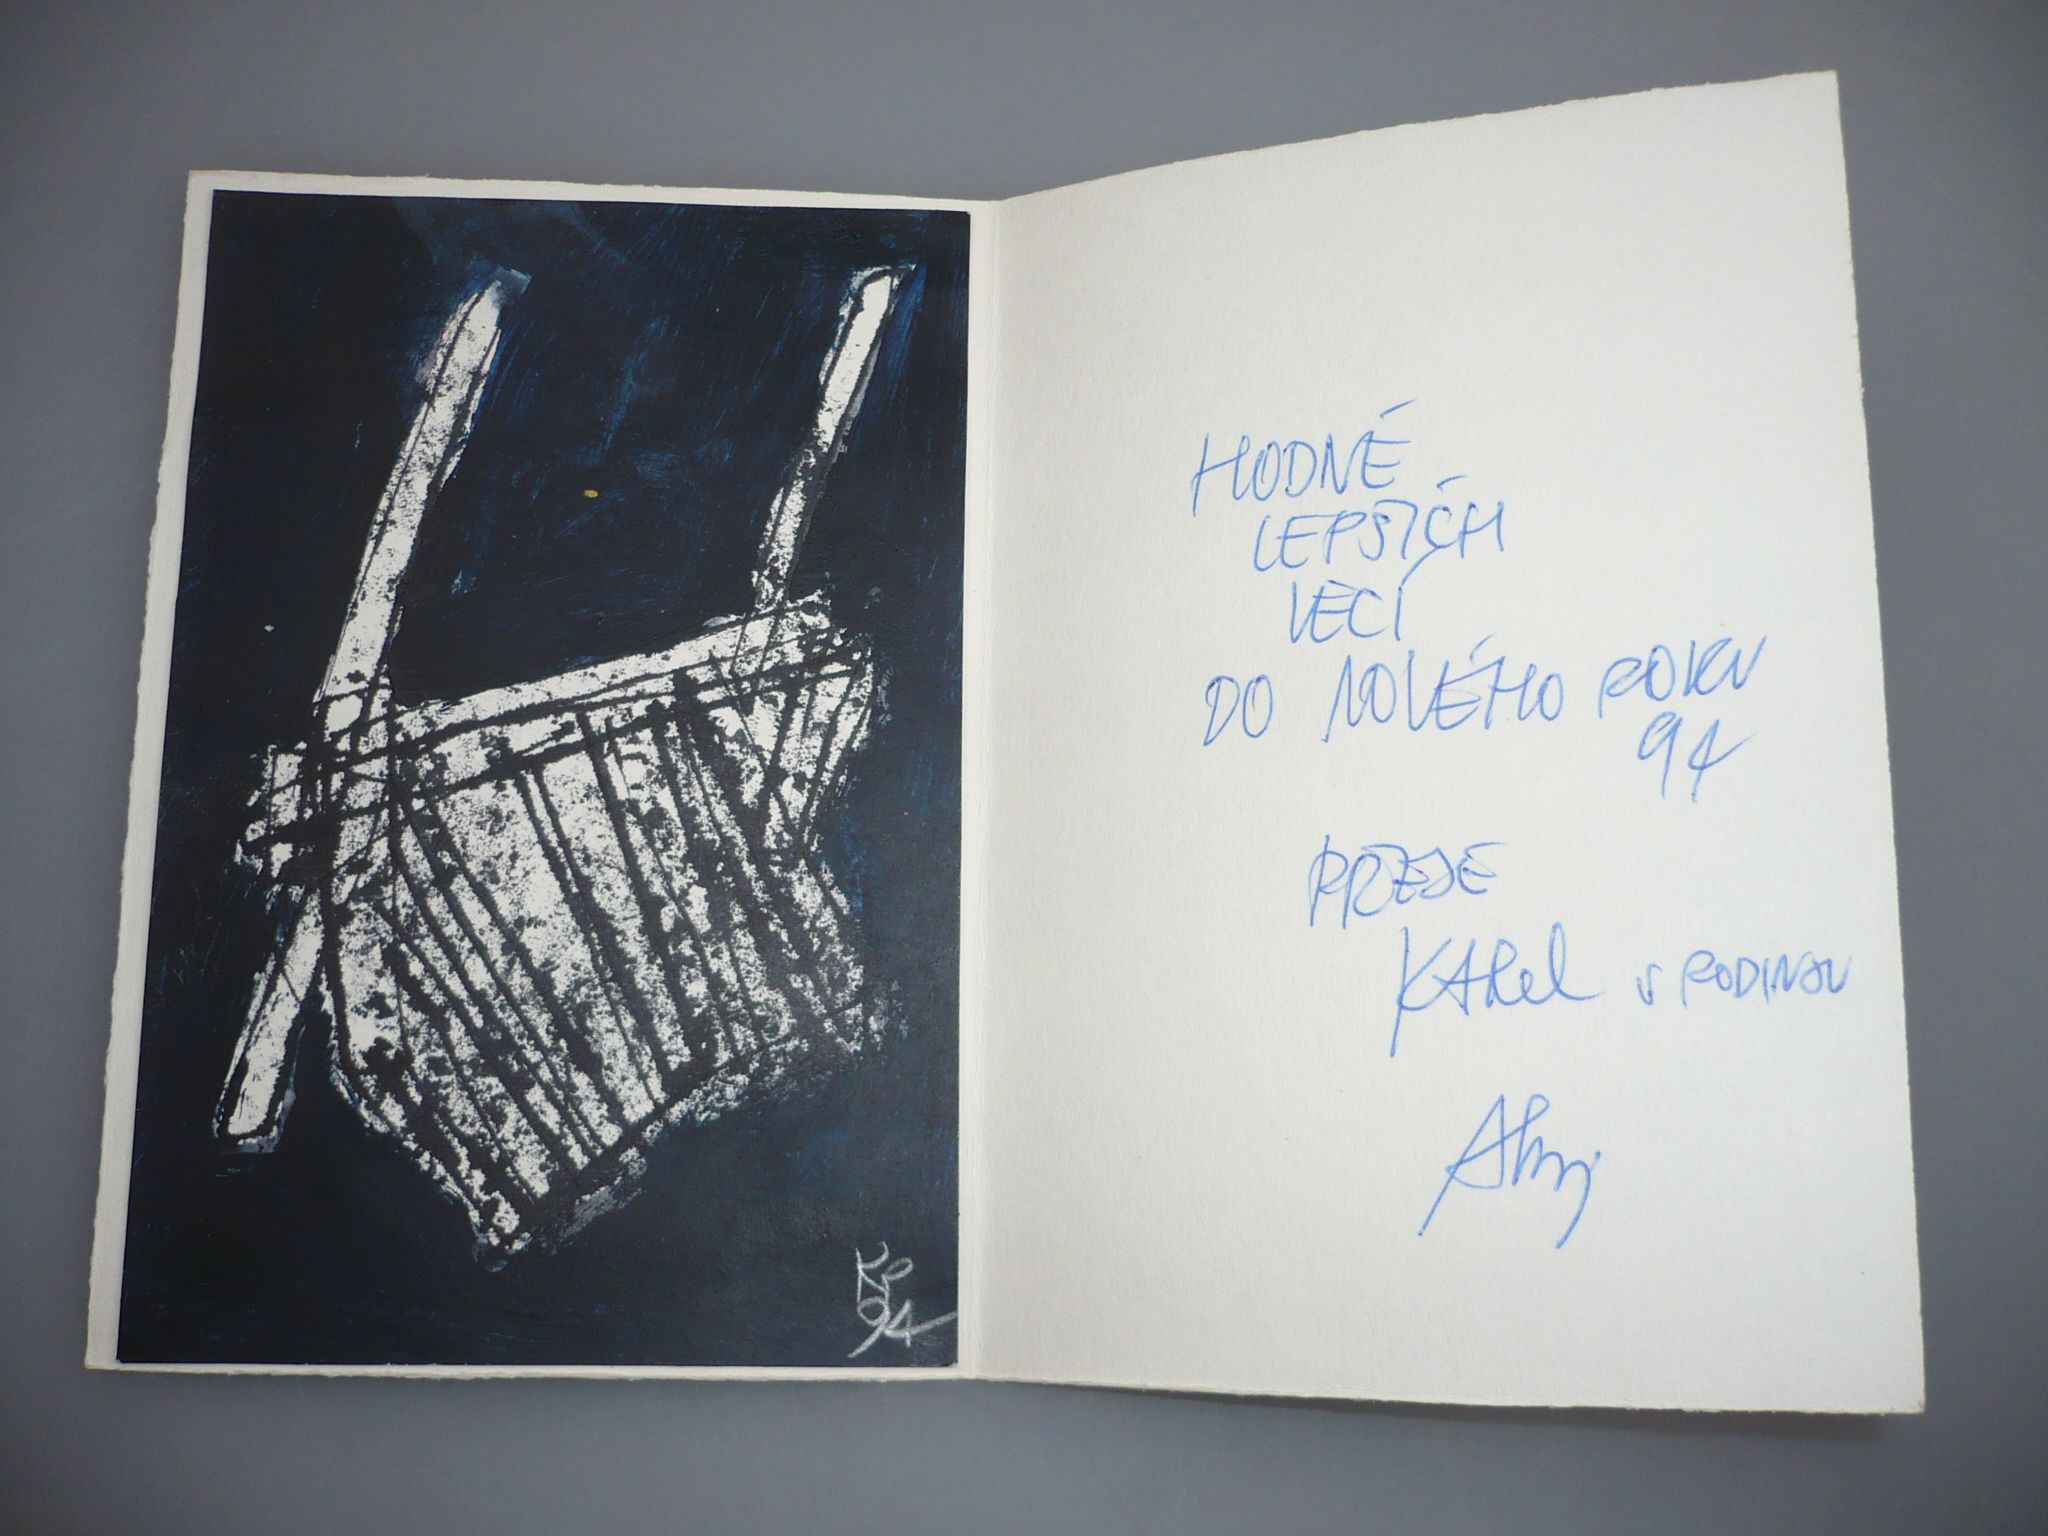 HODNĚ
LEPŠÍCH
VĚCÍ
DO NOVÉHO ROKU
94
PŘEJE
KAREL S RODINOU
94